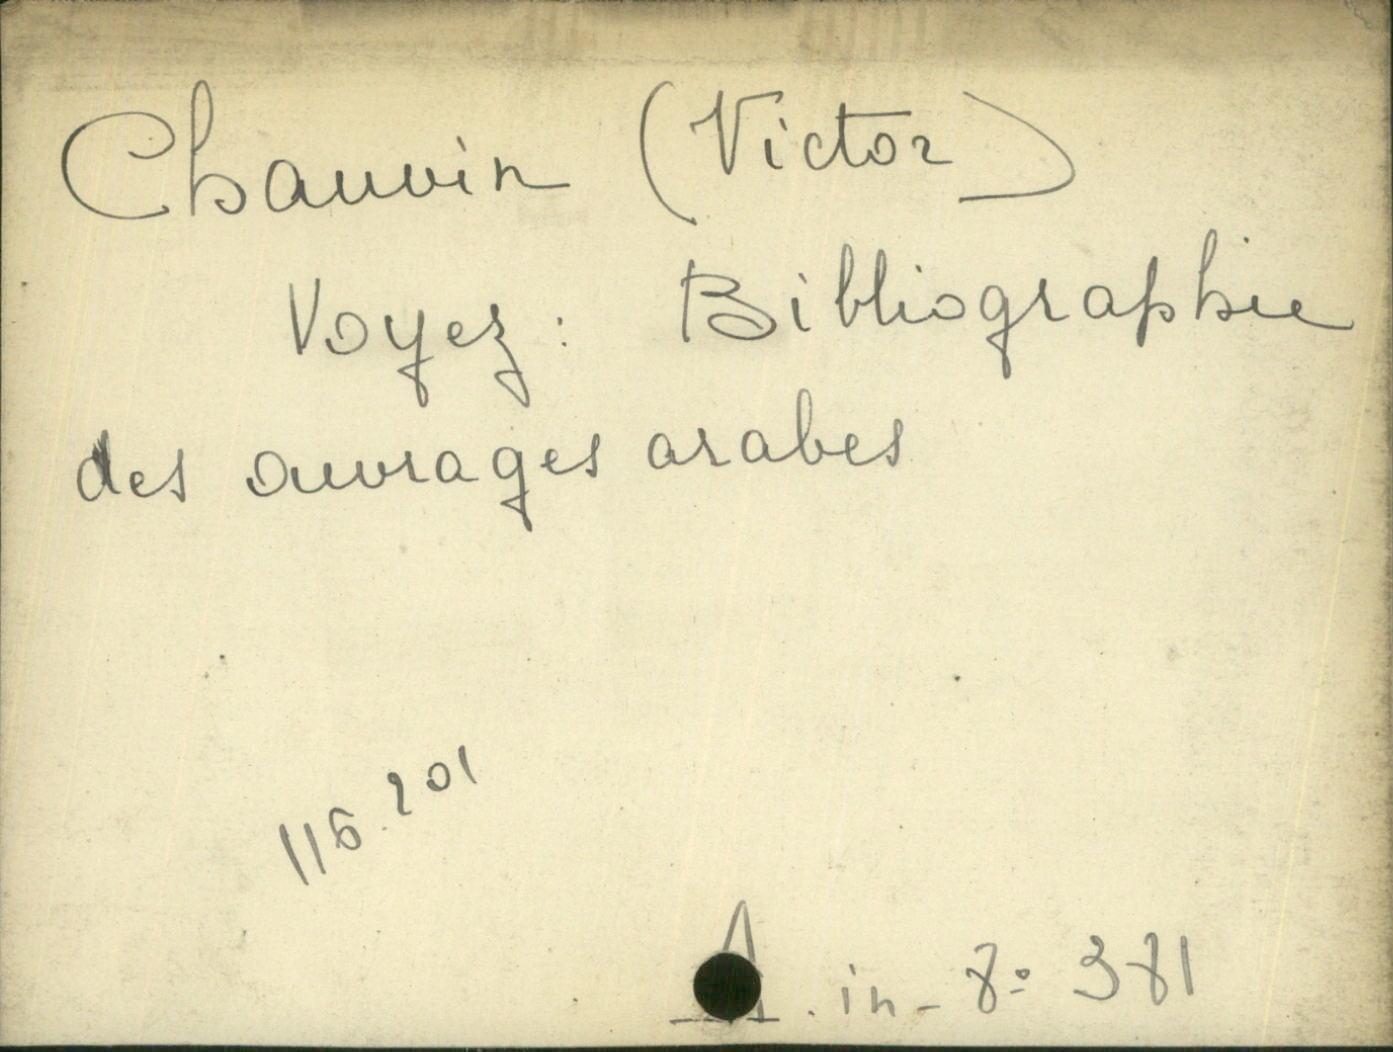 Chauvin (Victor)
Voyez : Bibliographie
des ouvrages arabes
116.201
A. in-8º 381